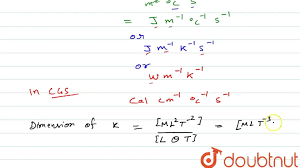 m² °C S
= J m⁻¹ °C⁻¹ S⁻¹
or
J m⁻¹ K⁻¹ S⁻¹
or
W m⁻¹ K⁻¹
In CGS
Cal cm⁻¹ °C⁻¹ S⁻¹
Dimension of K = [ML²T⁻²] / [L Θ T] = [MLT⁻³
doubtnut